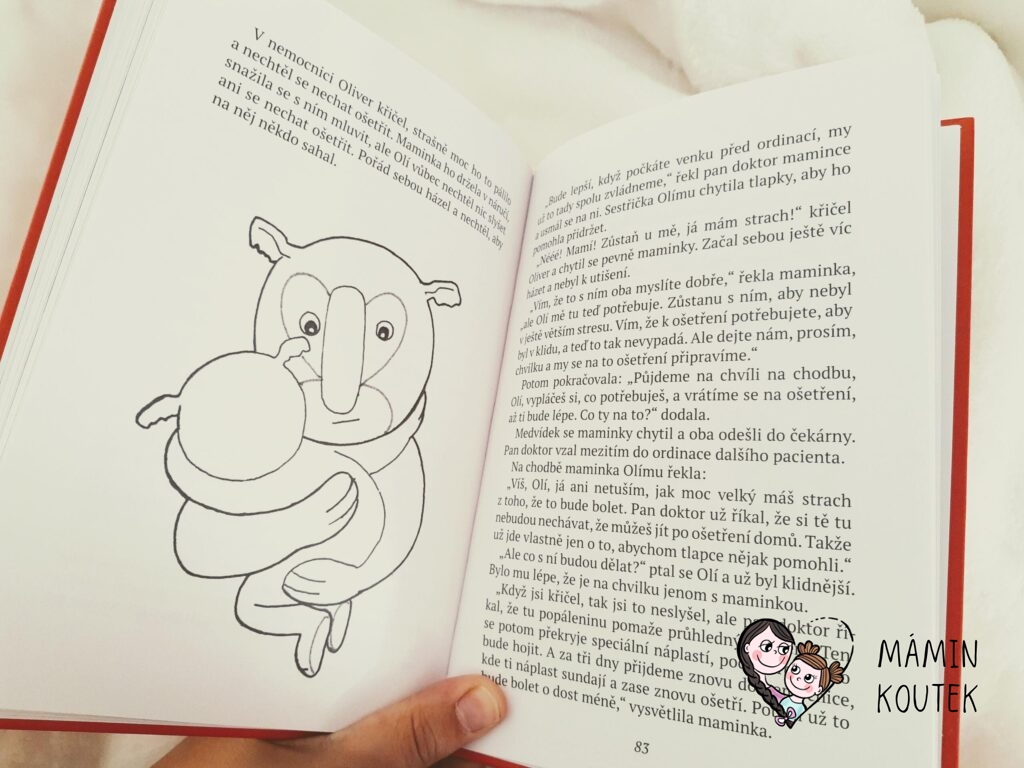 V nemocnici Oliver křičel, strašně moc ho to pálilo
a nechtěl se nechat ošetřit. Maminka ho držela v náručí,
snažila se s ním mluvit, ale Olí vůbec nechtěl nic slyšet
ani se nechat ošetřit. Pořád sebou házel a nechtěl, aby
na něj někdo sahal.
„Bude lepší, když počkáte venku před ordinací, my
už to tady spolu zvládneme,“ řekl pan doktor mamince
a usmál se na ni. Sestřička Olímu chytila tlapky, aby ho
pomohla přidržet.
„Nééé! Mami! Zůstaň u mě, já mám strach!“ křičel
Oliver a chytil se pevně maminky. Začal sebou ještě víc
házet a nebyl k utišení.
„Vím, že to s ním oba myslíte dobře,“ řekla maminka,
„ale Olí mě tu teď potřebuje. Zůstanu s ním, aby nebyl
v ještě větším stresu. Vím, že k ošetření potřebujete, aby
byl v klidu, a teď to tak nevypadá. Ale dejte nám, prosím,
chvilku a my se na to ošetření připravíme.“
Potom pokračovala: „Půjdeme na chvíli na chodbu,
Olí, vypláčeš si, co potřebuješ, a vrátíme se na ošetření,
až ti bude lépe. Co ty na to?“ dodala.
Medvídek se maminky chytil a oba odešli do čekárny.
Pan doktor vzal mezitím do ordinace dalšího pacienta.
Na chodbě maminka Olímu řekla:
„Víš, Olí, já ani netuším, jak moc velký máš strach
z toho, že to bude bolet. Pan doktor už říkal, že si tě tu
nebudou nechávat, že můžeš jít po ošetření domů. Takže
už jde vlastně jen o to, abychom tlapce nějak pomohli.“
„Ale co s ní budou dělat?“ ptal se Olí a už byl klidnější.
Bylo mu lépe, že je na chvilku jenom s maminkou.
„Když jsi křičel, tak jsi to neslyšel, ale doktor ří-
kal, že tu popáleninu pomaže průhledný Ten
se potom překryje speciální náplastí,
bude hojit. A za tři dny přijdeme znovu
kde ti náplast sundají a zase znovu ošetří. už to
bude bolet o dost méně,“ vysvětlila maminka.
83
MÁMIN
KOUTEK